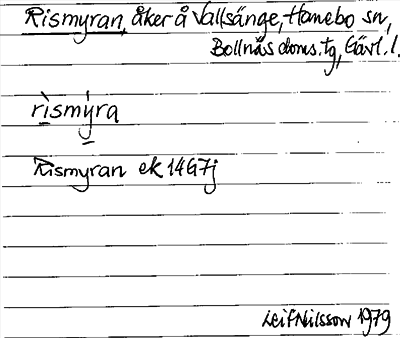 Rismyran, åker å Vallsänge, Hanebo sn,
Bollnäs doms. tg, Gävl. l.
rìsmỳra
Rismyran ek 14G7j
Leif Nilsson 1979